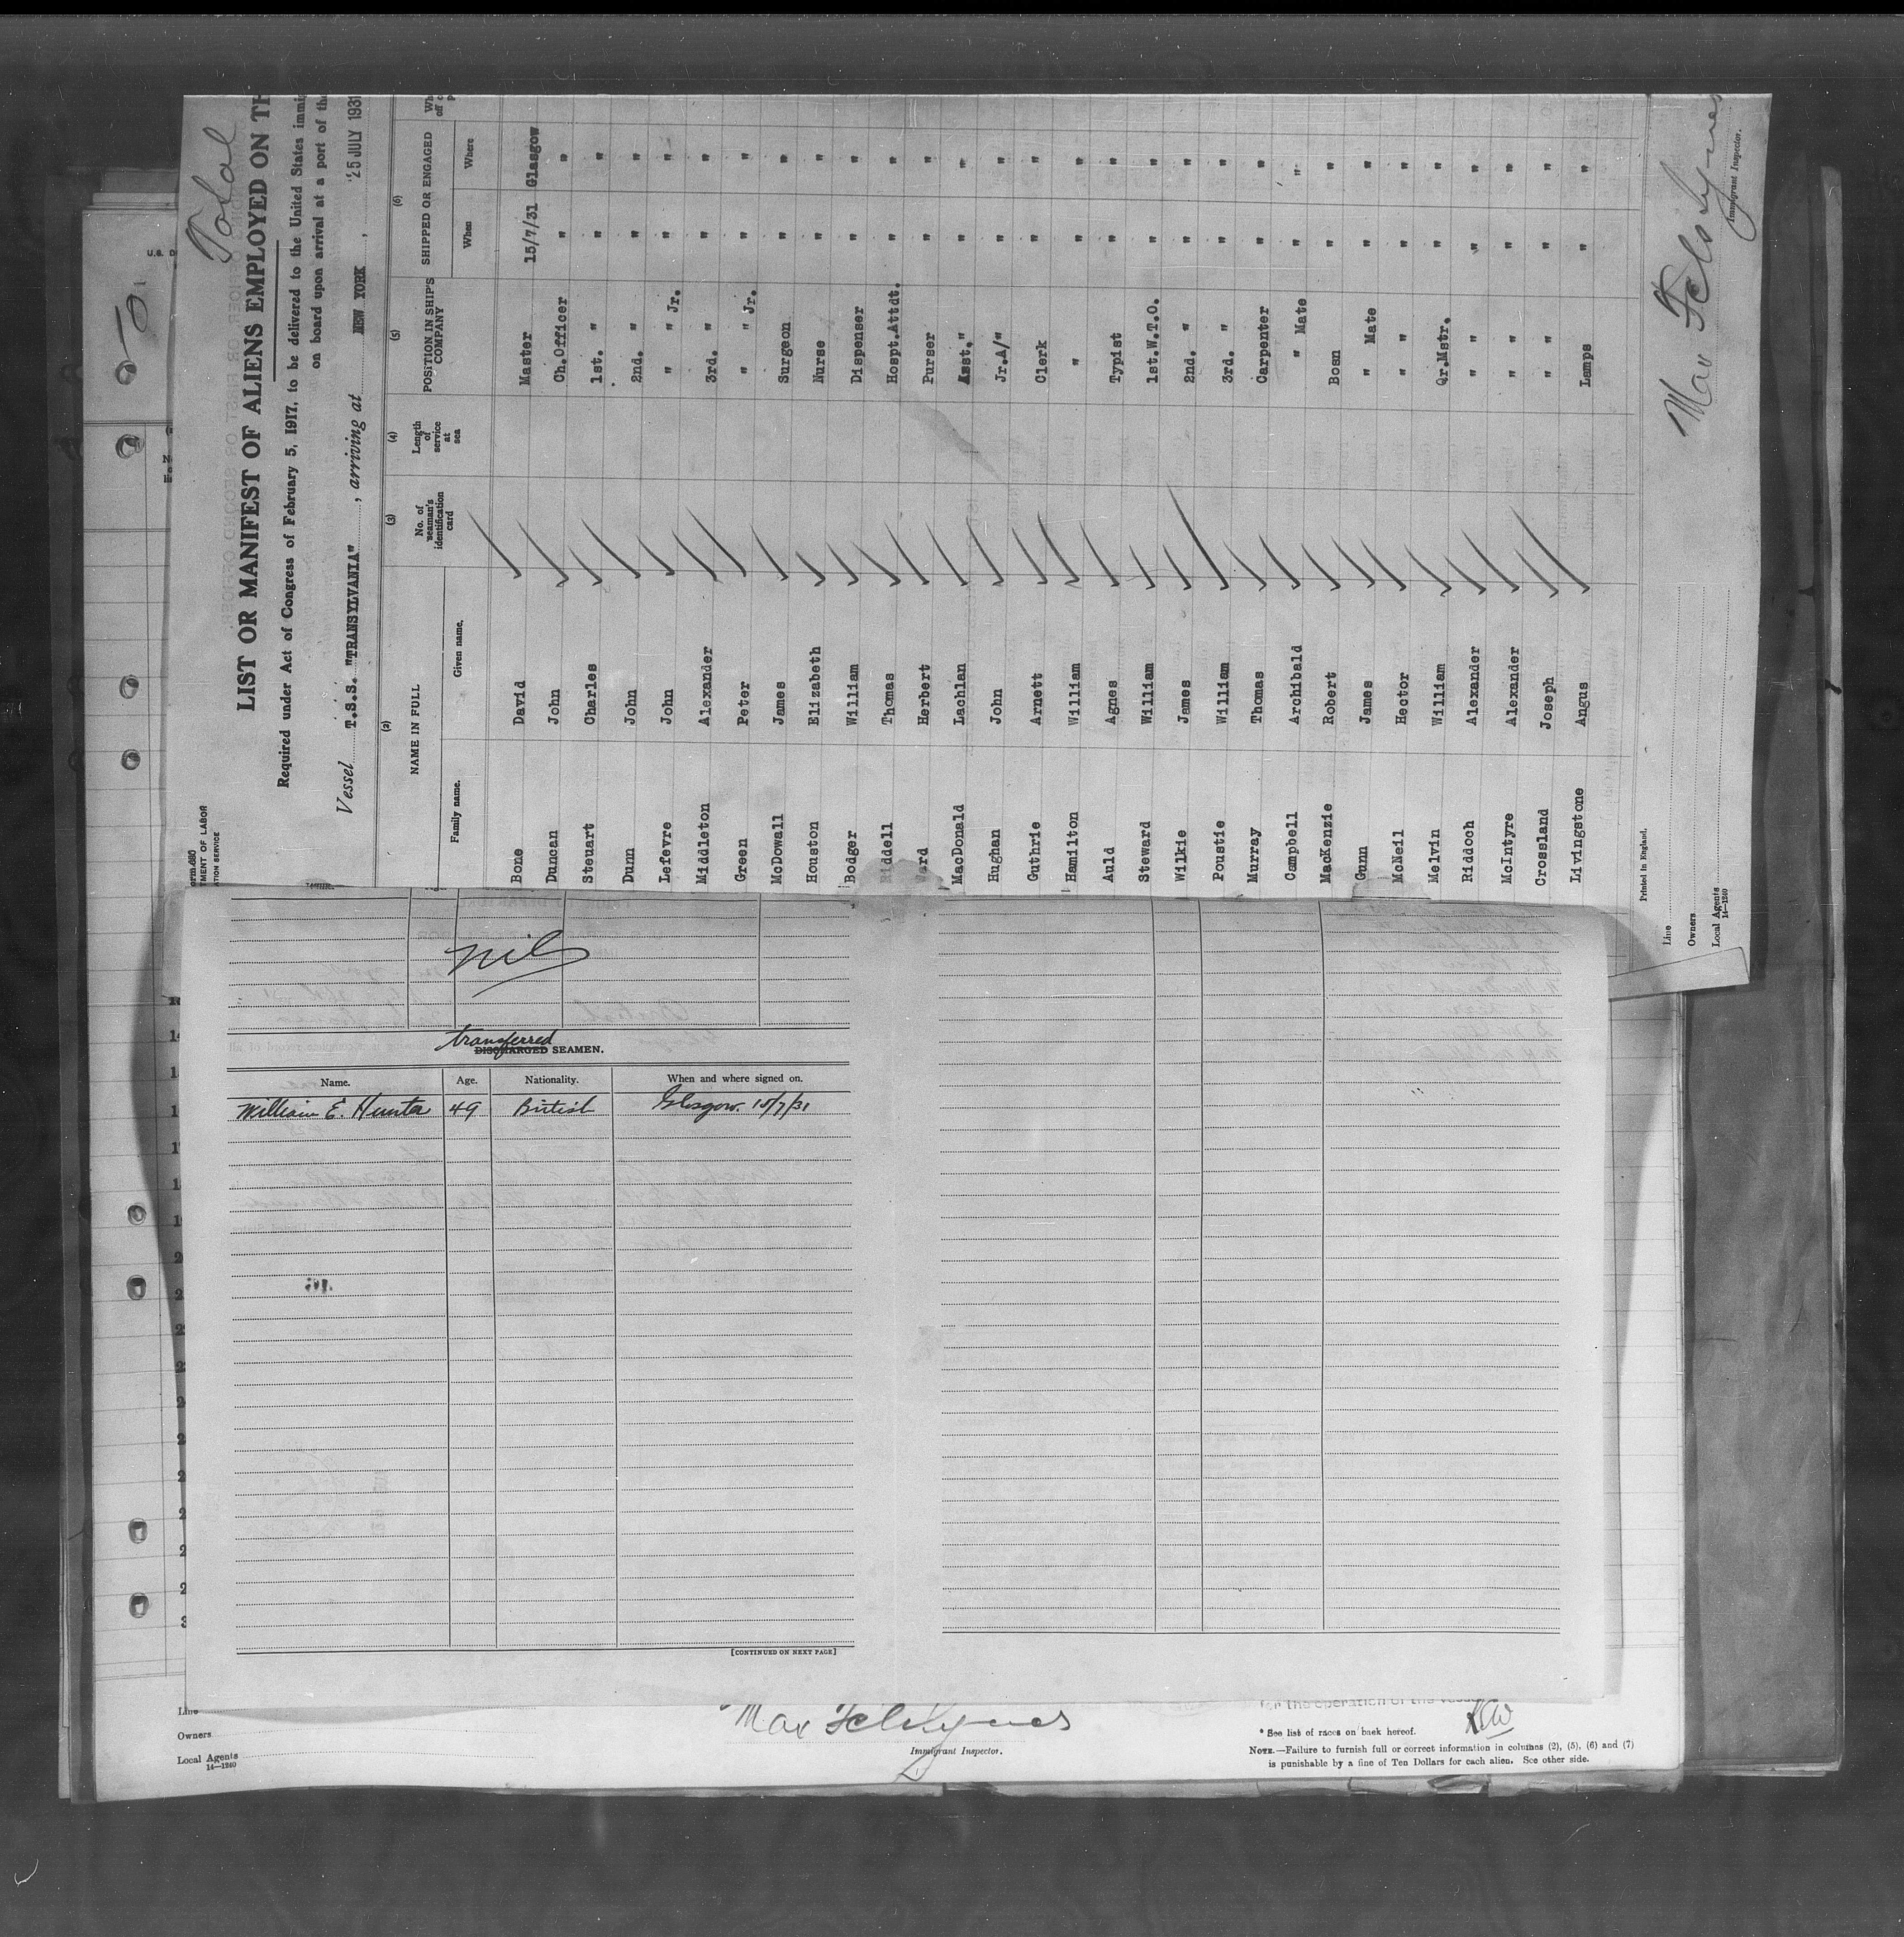 LIST OR MANIFEST OF ALIENS EMPLOYED ON TH
Required under Act of Congress of February 5, 1917, to be delivered to the United States immig
on board upon arrival at a port of the
Vessel T.S.S. "TRANSYLVANIA", arriving at NEW YORK, 25 JULY 1931
(2) (3) (4) (5) (6)
NAME IN FULL No. of seaman's identification card Length of service at sea POSITION IN SHIP'S COMPANY SHIPPED OR ENGAGED
Family name. Given name. When Where
Bone David Master 15/7/31 Glasgow
Duncan John Ch.Officer " "
Steuart Charles 1st. " " "
Dunn John 2nd. " " "
Lefevre John " " Jr. " "
Middleton Alexander 3rd. " " "
Green Peter " " Jr. " "
McDowall James Surgeon " "
Houston Elizabeth Nurse " "
Bodger William Dispenser " "
Riddell Thomas Hospt.Attdt. " "
Ward Herbert Purser " "
MacDonald Lachlan Asst." " "
Hughan John Jr.A/" " "
Guthrie Arnett Clerk " "
Hamilton William " " "
Auld Agnes Typist " "
Steward William 1st.W.T.O. " "
Wilkie James 2nd. " " "
Poustie William 3rd. " " "
Murray Thomas Carpenter " "
Campbell Archibald " Mate " "
MacKenzie Robert Bosn " "
Gunn James " Mate " "
McNeil Hector " " " "
Melvin William Qr.Mstr. " "
Riddoch Alexander " " " "
McIntyre Alexander " " " "
Crossland Joseph " " " "
Livingstone Angus Lamps " "
Printed in England.
Line
Owners
Local Agents
14—1240
Immigrant Inspector.
nil
transferred
DISCHARGED SEAMEN.
Name. Age. Nationality. When and where signed on.
William E. Hunter 49 British Glasgow. 15/7/31
[CONTINUED ON NEXT PAGE]
Line
Owners
Local Agents
14—1240
Immigrant Inspector.
for the operation of the vessel
* See list of races on back hereof.
NOTE.—Failure to furnish full or correct information in columns (2), (5), (6) and (7)
is punishable by a fine of Ten Dollars for each alien. See other side.